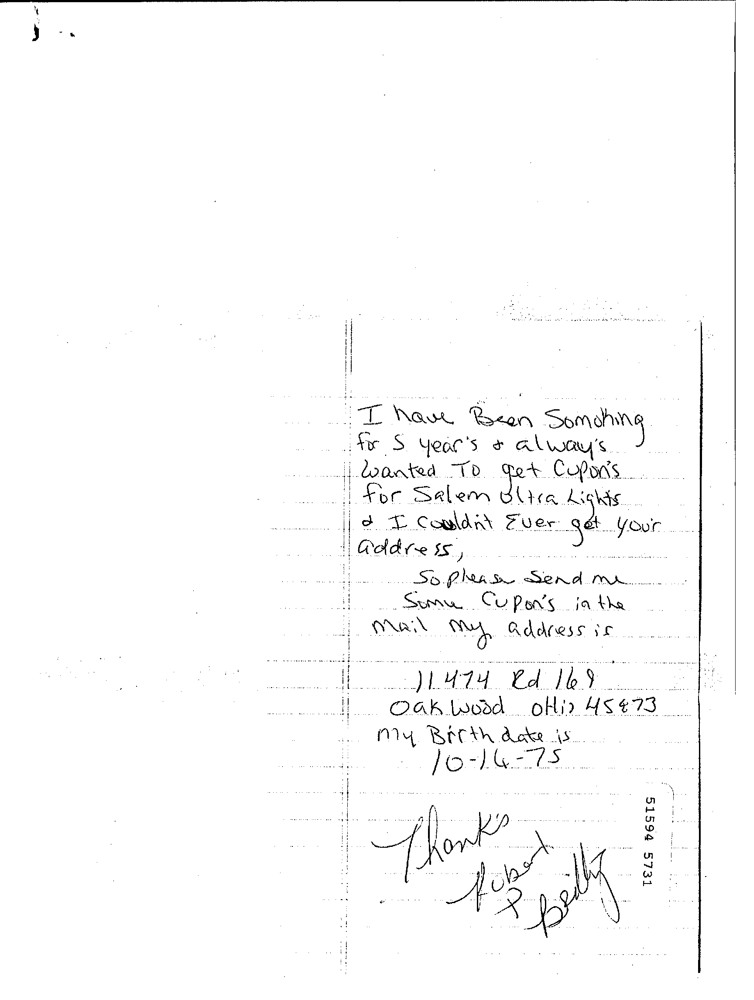 I have Been Somoking
for 5 year's & alway's
Wanted To get Cupon's
for Salem Ultra Lights
& I Couldn't Ever get your
address,
So please Send me
Some Cupon's in the
Mail My address is
11474 Rd 169
Oakwood OHio 45873
My Birth date is
10-14-75
Thank's
Robert
P
Beilly
51594 5731